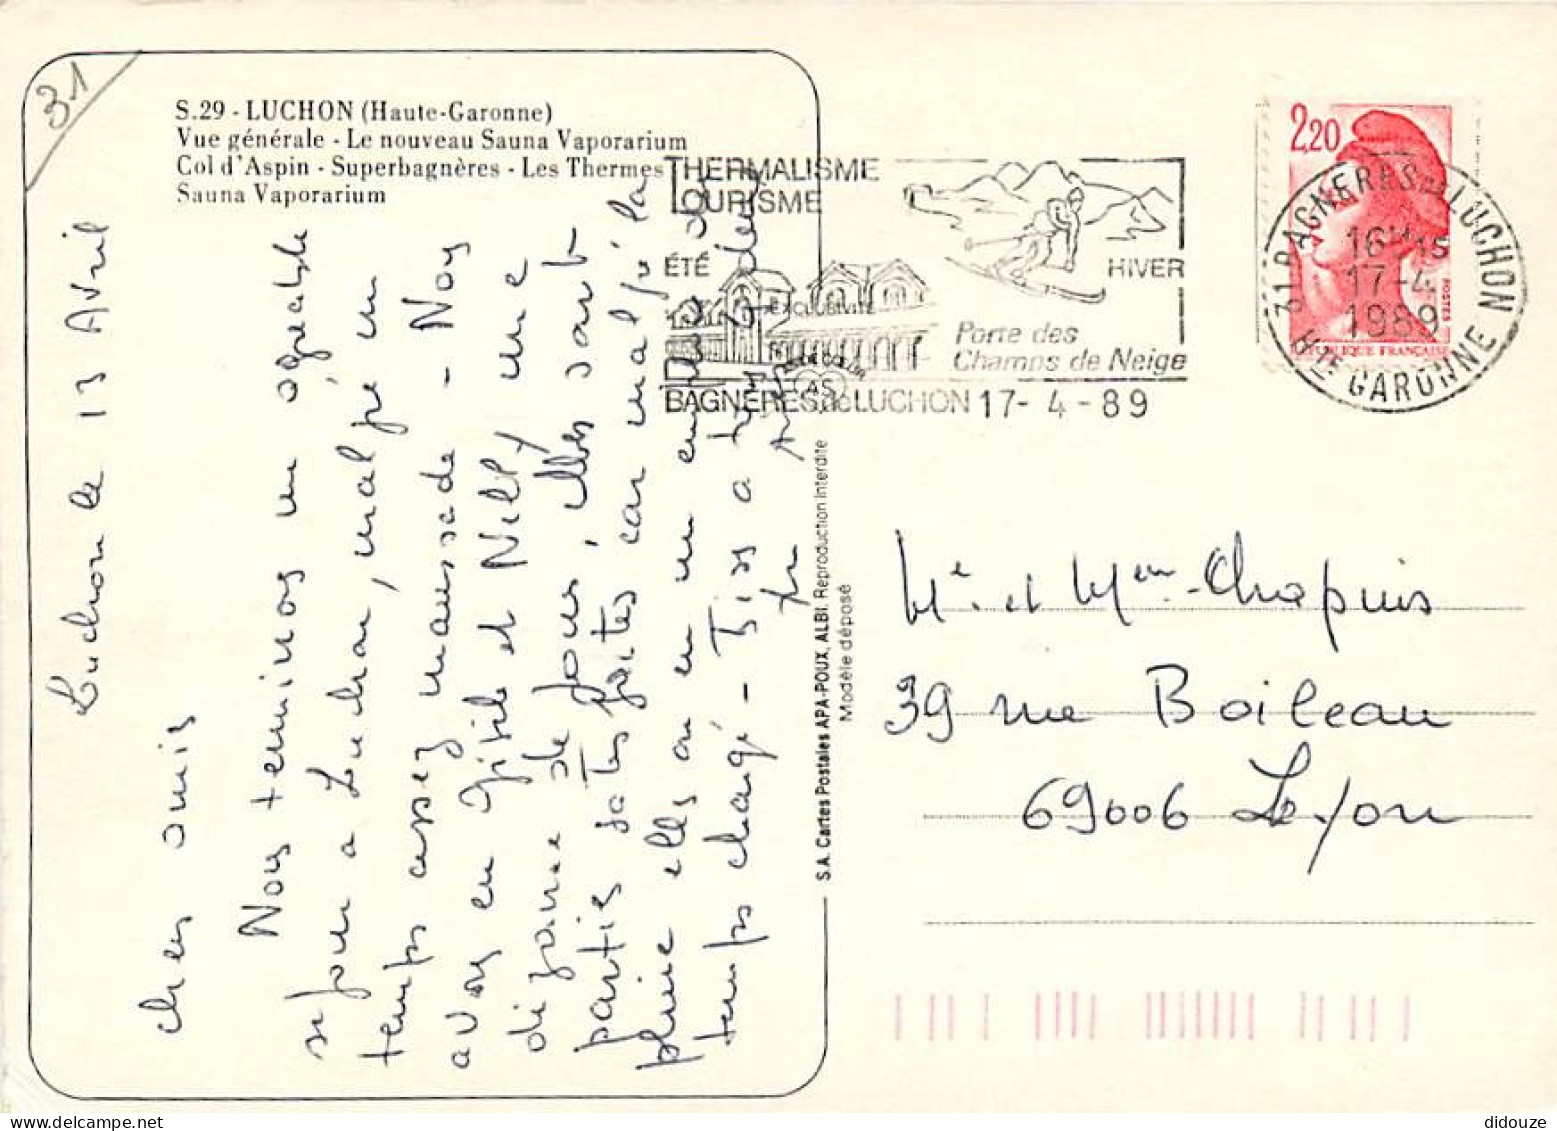 31
S.29 - LUCHON (Haute-Garonne)
Vue générale - Le nouveau Sauna Vaporarium
Col d'Aspin - Superbagnères - Les Thermes
Sauna Vaporarium
THERMALISME
TOURISME
ÉTÉ
HIVER
EXCLUSIVITÉ
Porte des
Champs de Neige
BAGNERES de LUCHON 17- 4 - 89
2,20
POSTES
REPUBLIQUE FRANÇAISE
31 BAGNERES de LUCHON
16H15
17-4
1989
Hte GARONNE
Luchon le 13 Avril
Chers amis
Nous terminons un agréable
séjour a Luchon, malgré un
temps assez maussade - Nous
avons eu Gisèle et Nelly une
dizaine de jours, elles sont
parties satisfaites car malgré la
pluie elles on eu un
temps changé - Biss a tous deux
S.A. Cartes Postales APA-POUX, ALBI. Reproduction Interdite
Modèle déposé
Mr. et Mme Chapuis
39 rue Boileau
69006 Lyon
didouze